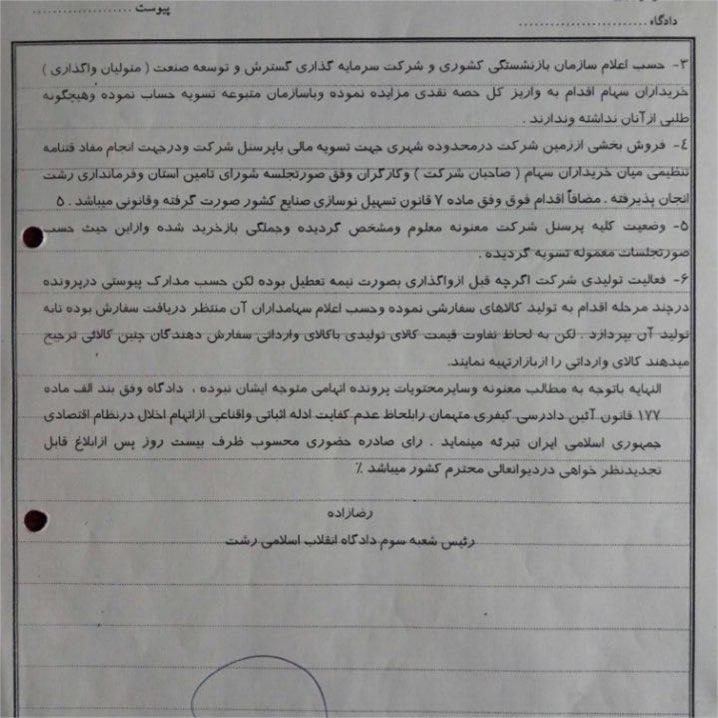 پیوست ....................
دادگاه ............................
۳- حسب اعلام سازمان بازنشستگی کشوری و شرکت سرمایه گذاری گسترش و توسعه صنعت ( متولیان واگذاری )
خریداران سهام اقدام به واریز کل حصه نقدی مزایده نموده وباسازمان متبوعه تسویه حساب نموده وهیچگونه
طلبی ازآنان نداشته وندارند .
٤- فروش بخشی اززمین شرکت درمحدوده شهری جهت تسویه مالی باپرسنل شرکت ودرجهت انجام مفاد قتنامه
تنظیمی میان خریداران سهام ( صاحبان شرکت ) وکارگران وفق صورتجلسه شورای تامین استان وفرمانداری رشت
انجان پذیرفته . مضافاً اقدام فوق وفق ماده ۷ قانون تسهیل نوسازی صنایع کشور صورت گرفته وقانونی میباشد . ۵
۵- وضعیت کلیه پرسنل شرکت معنونه معلوم ومشخص گردیده وجملگی بازخرید شده وازاین حیث حسب
صورتجلسات معموله تسویه گردیده .
۶- فعالیت تولیدی شرکت اگرچه قبل ازواگذاری بصورت نیمه تعطیل بوده لکن حسب مدارک پیوستی درپرونده
درچند مرحله اقدام به تولید کالاهای سفارشی نموده وحسب اعلام سهامداران آن منتظر دریافت سفارش بوده تابه
تولید آن بپردازد . لکن به لحاظ تفاوت قیمت کالای تولیدی باکالای وارداتی سفارش دهندگان چنین کالائی ترجیح
میدهند کالای وارداتی را ازبازارتهیه نمایند.
النهایه باتوجه به مطالب معنونه وسایرمحتویات پرونده اتهامی متوجه ایشان نبوده ، دادگاه وفق بند الف ماده
۱۷۷ قانون آئین دادرسی کیفری متهمان رابلحاظ عدم کفایت ادله اثباتی واقناعی ازاتهام اخلال درنظام اقتصادی
جمهوری اسلامی ایران تبرئه مینماید . رای صادره حضوری محسوب ظرف بیست روز پس ازابلاغ قابل
تجدیدنظر خواهی دردیوانعالی محترم کشور میباشد ٪
رضازاده
رئیس شعبه سوم دادگاه انقلاب اسلامی رشت